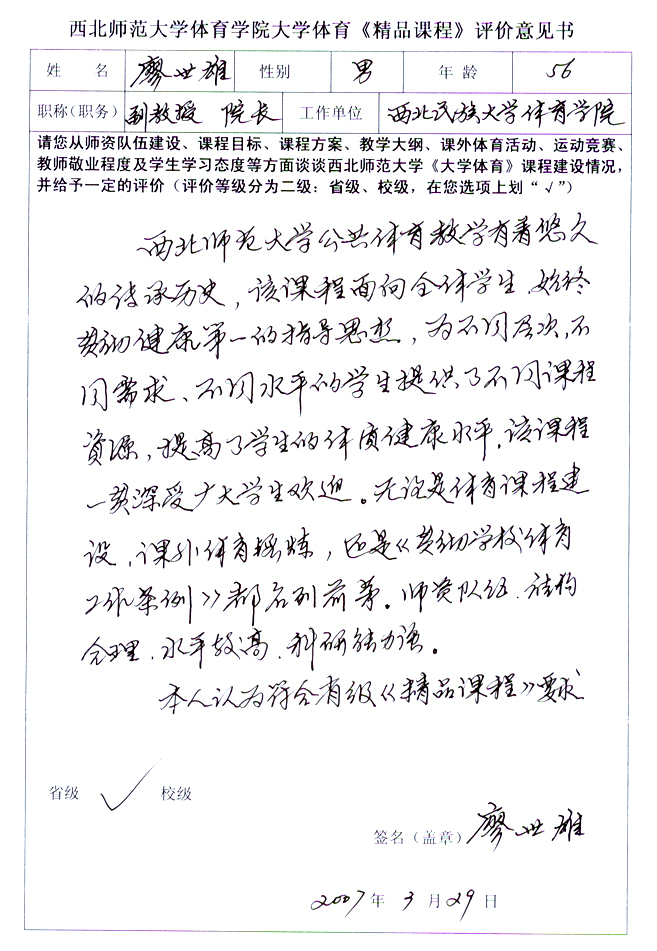 西北师范大学体育学院大学体育《精品课程》评价意见书
姓 名 廖世雄 性别 男 年 龄 56
职称(职务) 副教授 院长 工作单位 西北民族大学体育学院
请您从师资队伍建设、课程目标、课程方案、教学大纲、课外体育活动、运动竞赛、
教师敬业程度及学生学习态度等方面谈谈西北师范大学《大学体育》课程建设情况，
并给予一定的评价（评价等级分为二级：省级、校级，在您选项上划“√”）
西北师范大学公共体育教学有着悠久
的传承历史，该课程面向全体学生，始终
贯彻健康第一的指导思想，为不同层次，不
同需求、不同水平的学生提供了不同课程
资源，提高了学生的体质健康水平，该课程
一贯深受广大学生欢迎。无论是体育课程建
设，课外体育锻炼，还是《贯彻学校体育
工作条例》都名列前茅。师资队伍、结构
合理、水平较高、科研能力强。
本人认为符合省级《精品课程》要求
省级 √ 校级
签名（盖章） 廖世雄
2007 年 3 月 29 日